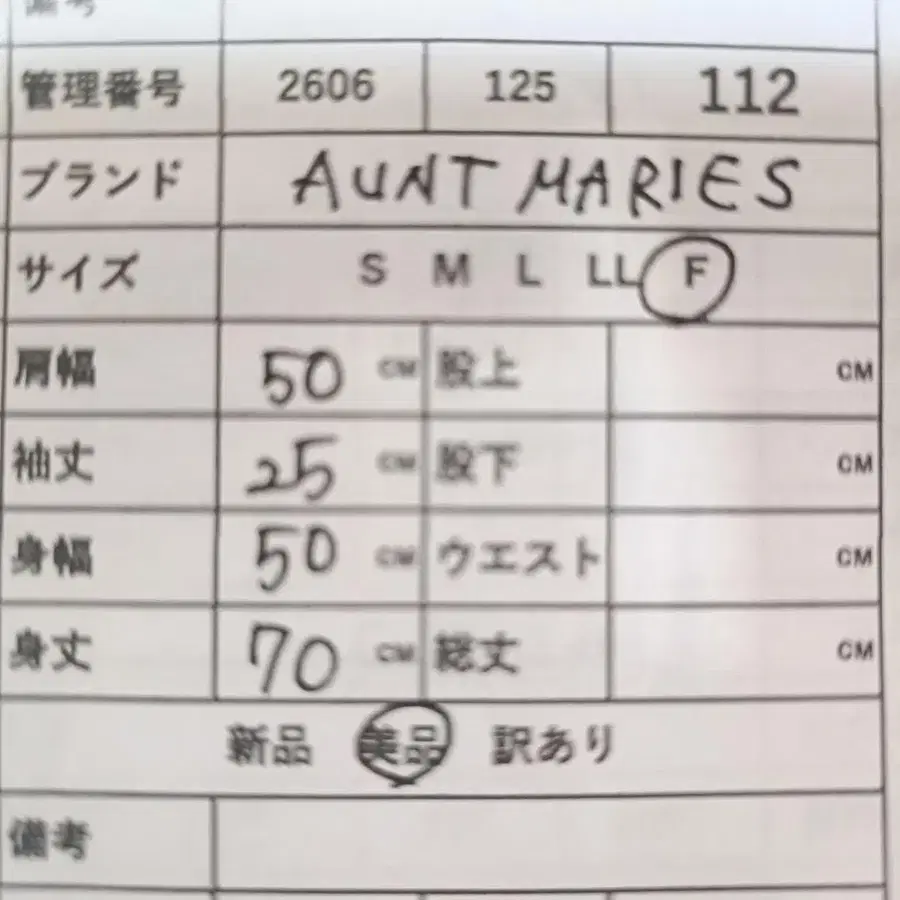 備考
管理番号 2606 125 112
ブランド AUNT MARIES
サイズ S M L LL F
肩幅 50 CM 股上 CM
袖丈 25 CM 股下 CM
身幅 50 CM ウエスト CM
身丈 70 CM 総丈 CM
新品 美品 訳あり
備考